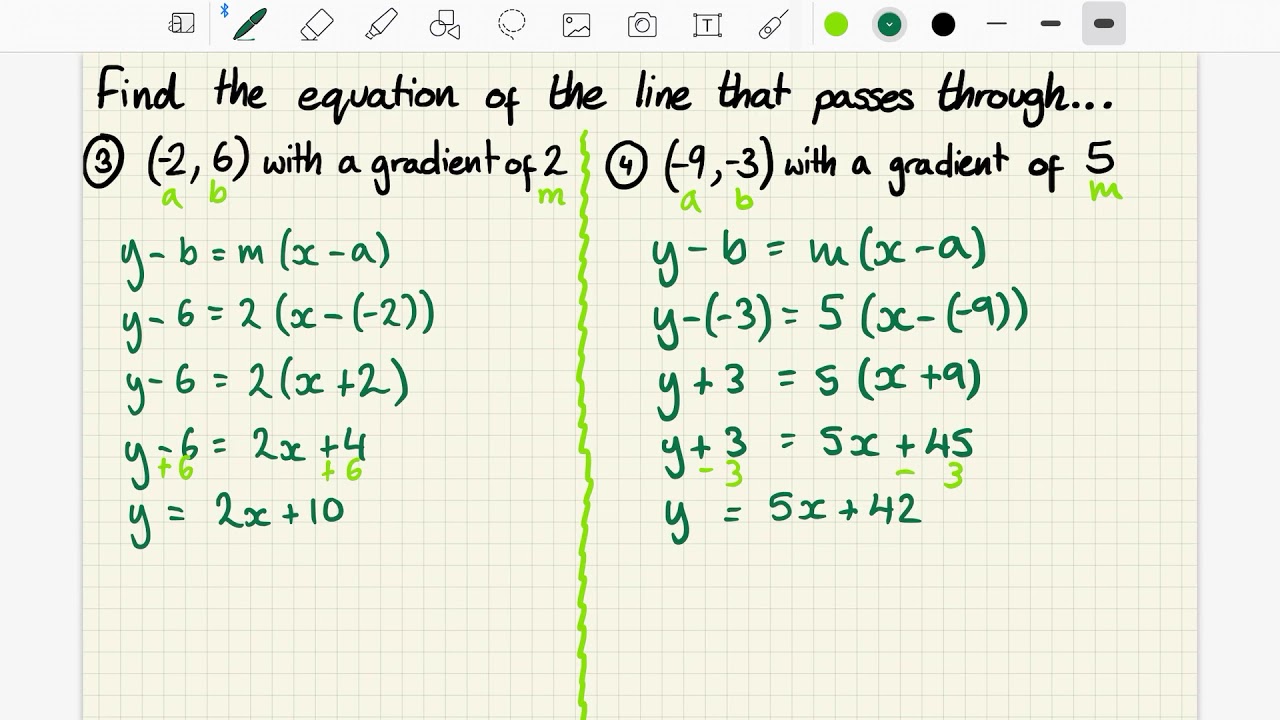 T
Find the equation of the line that passes through...
③ (-2, 6) with a gradient of 2
a b m
y - b = m (x - a)
y - 6 = 2 (x - (-2))
y - 6 = 2 (x + 2)
y - 6 = 2x + 4
+ 6 + 6
y = 2x + 10
④ (-9, -3) with a gradient of 5
a b m
y - b = m (x - a)
y - (-3) = 5 (x - (-9))
y + 3 = 5 (x + 9)
y + 3 = 5x + 45
- 3 - 3
y = 5x + 42